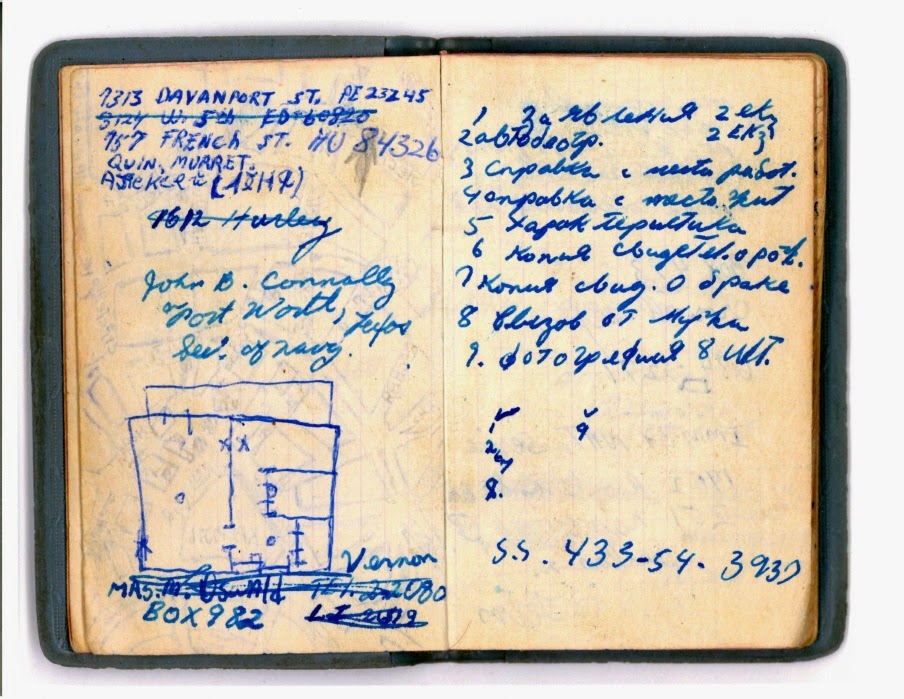 1313 DAVANPORT ST. PE 23245
3124 W. 5th ED-60820
757 FRENCH ST. HU 84326
QUIN. MURRET.
1612 Hurley
John B. Connally
Fort Worth, Texas
Sec. of navy.
Vernon
MRS. M. Oswald TEL. 22080
BOX 982
1 Заявления 2 ekz
2 автобогр. 2 EKz
3 Справка с места работ.
4 Справка с место жит
5 Характеристика
6 Копия свидетел. о рож.
7 Копия свид. о браке
8 Ввызов от мужа
9. фотография 8 шт.
1
9
2
8.
S.S. 433-54-3937